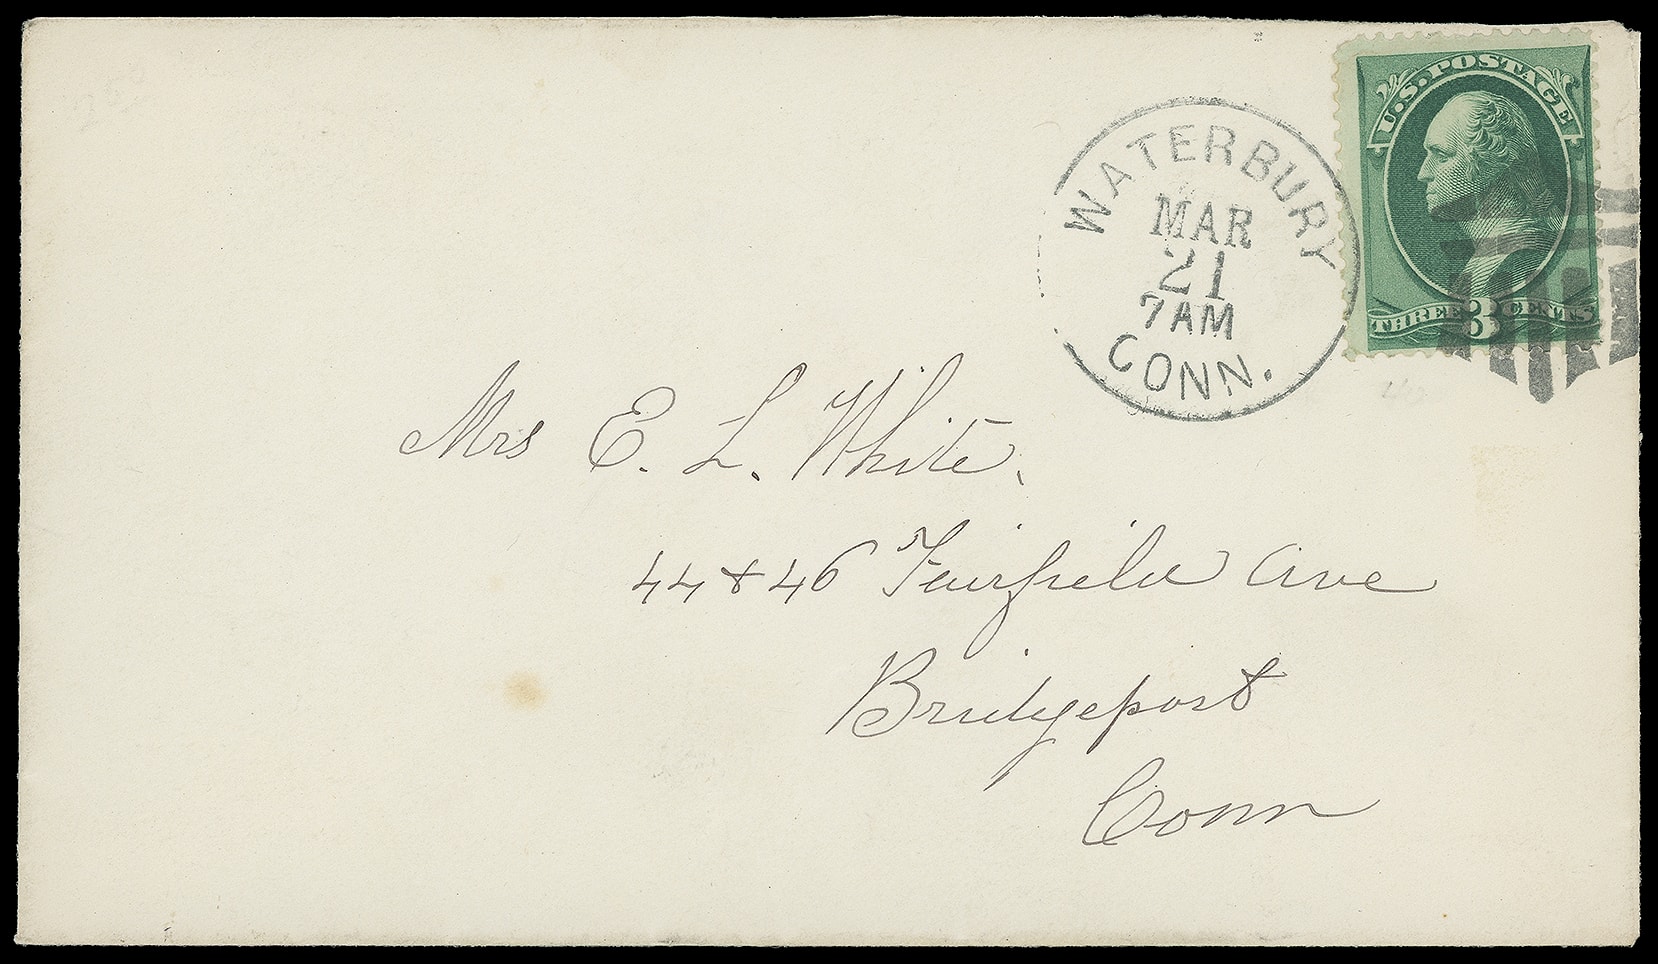 U.S. POSTAGE
THREE 3 CENTS
WATERBURY
MAR
21
7 AM
CONN.
Mrs E. L. White.
44 & 46 Fairfield Ave
Bridgeport
Conn